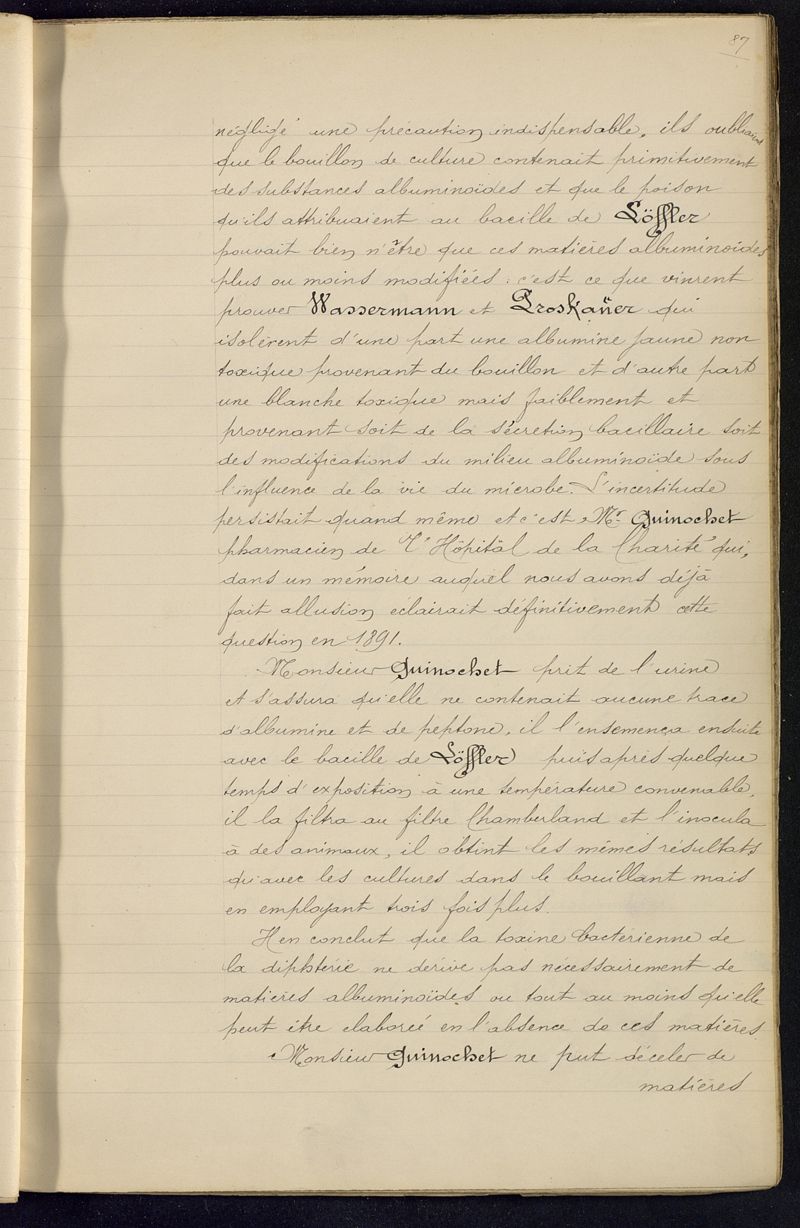 87
négligé une précaution indispensable, ils oubliaient
que le bouillon de culture contenait primitivement
des substances albuminoïdes et que le poison
qu'ils attribuaient au bacille de Löffler
pouvait bien n'être que ces matières albuminoïdes
plus ou moins modifiées : c'est ce que vinrent
prouver Wassermann et Proskaüer qui
isolèrent d'une part une albumine jaune non
toxique provenant du bouillon et d'autre part
une blanche toxique mais faiblement et
provenant soit de la sécretion bacillaire soit
des modifications du milieu albuminoïde sous
l'influence de la vie du microbe. L'incertitude
persistait quand même et c'est Mr Guinochet
pharmacien de l'Hôpital de la Charité qui,
dans un mémoire auquel nous avons déjà
fait allusion éclairait définitivement cette
question en 1891.
Monsieur Guinochet prit de l'urine
et s'assura qu'elle ne contenait aucune trace
d'albumine et de peptone, il l'ensemença ensuite
avec le bacille de Löffler puis après quelque
temps d'exposition à une température convenable,
il la filtra au filtre Chamberland et l'inocula
à des animaux, il obtint les mêmes résultats
qu'avec les cultures dans le bouillant mais
en employant trois fois plus.
Il en conclut que la toxine bactérienne de
la diphtérie ne dérive pas nécessairement de
matières albuminoïdes ou tout au moins qu'elle
peut être elaborée en l'absence de ces matières
Monsieur Guinochet ne put déceler de
matières